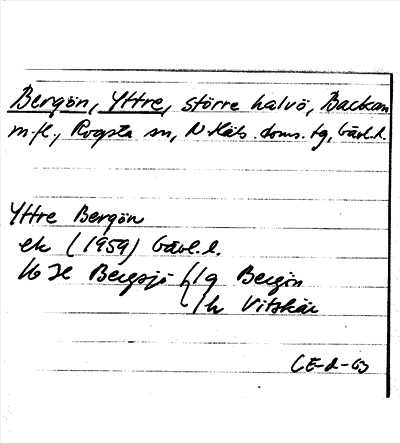 Bergön, Yttre, större halvö, Backen
m.fl., Rogsta sn, N Häls. doms. tg, Gävl. l.
Yttre Bergön
ek (1959) Gävl. l.
16 H Bergsjö f/g Bergön
/h Vitskär
CE-d-63